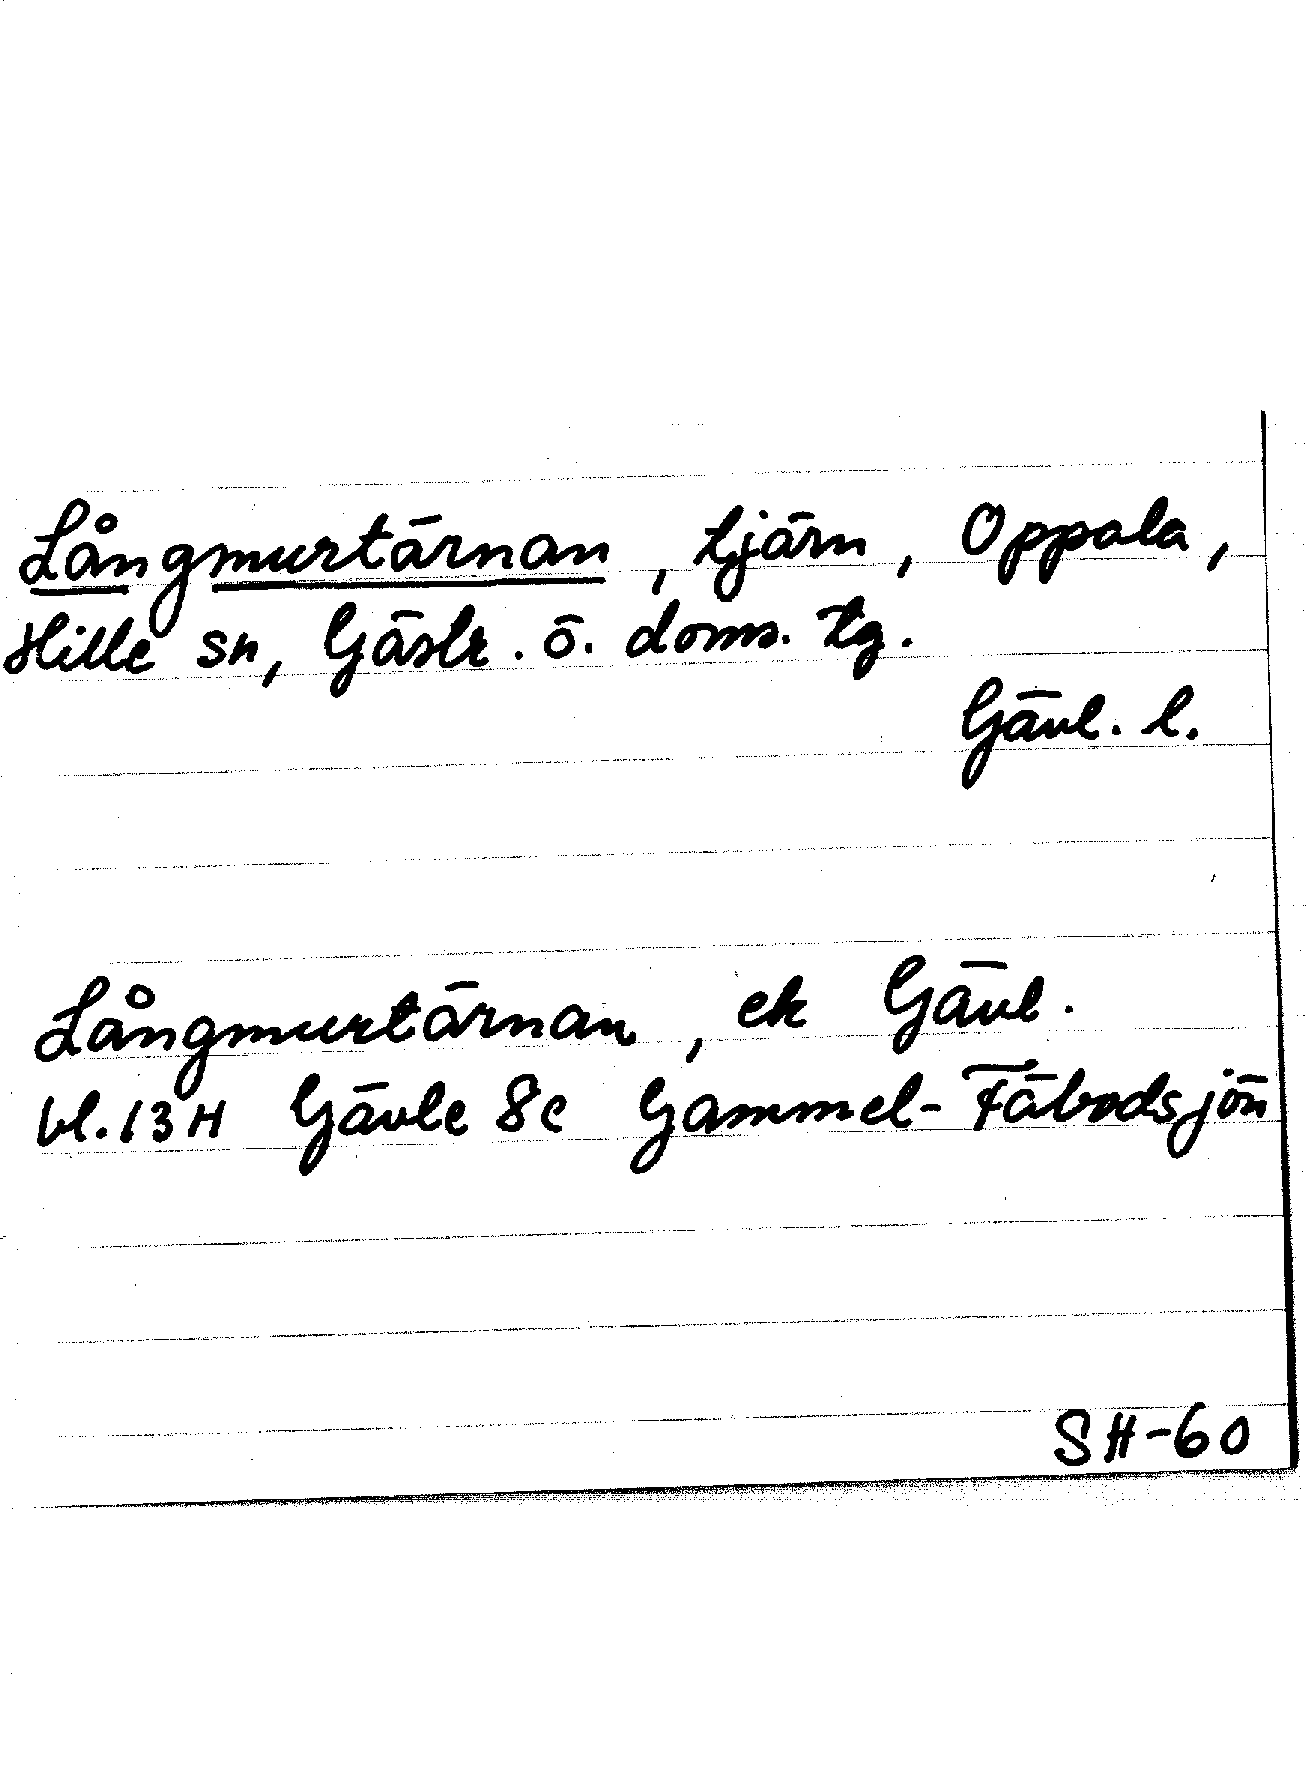 Långmurtärnan, tjärn, Oppala,
Hille sn, Gästr. ö. doms. tg.
Gävl. l.
Långmurtärnan, ek Gävl.
bl. 13 H Gävle 8c Gammel-Fäbodsjön
SH-60